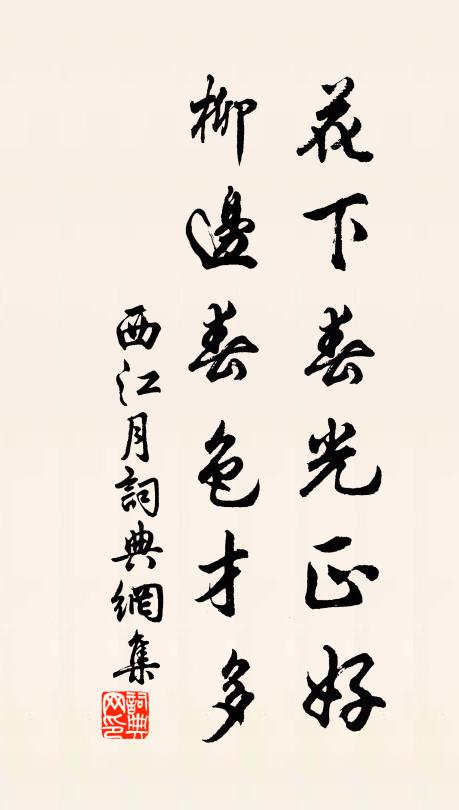 花下春光正好
柳邊春色才多
西江月詞典網集
詞典
网印